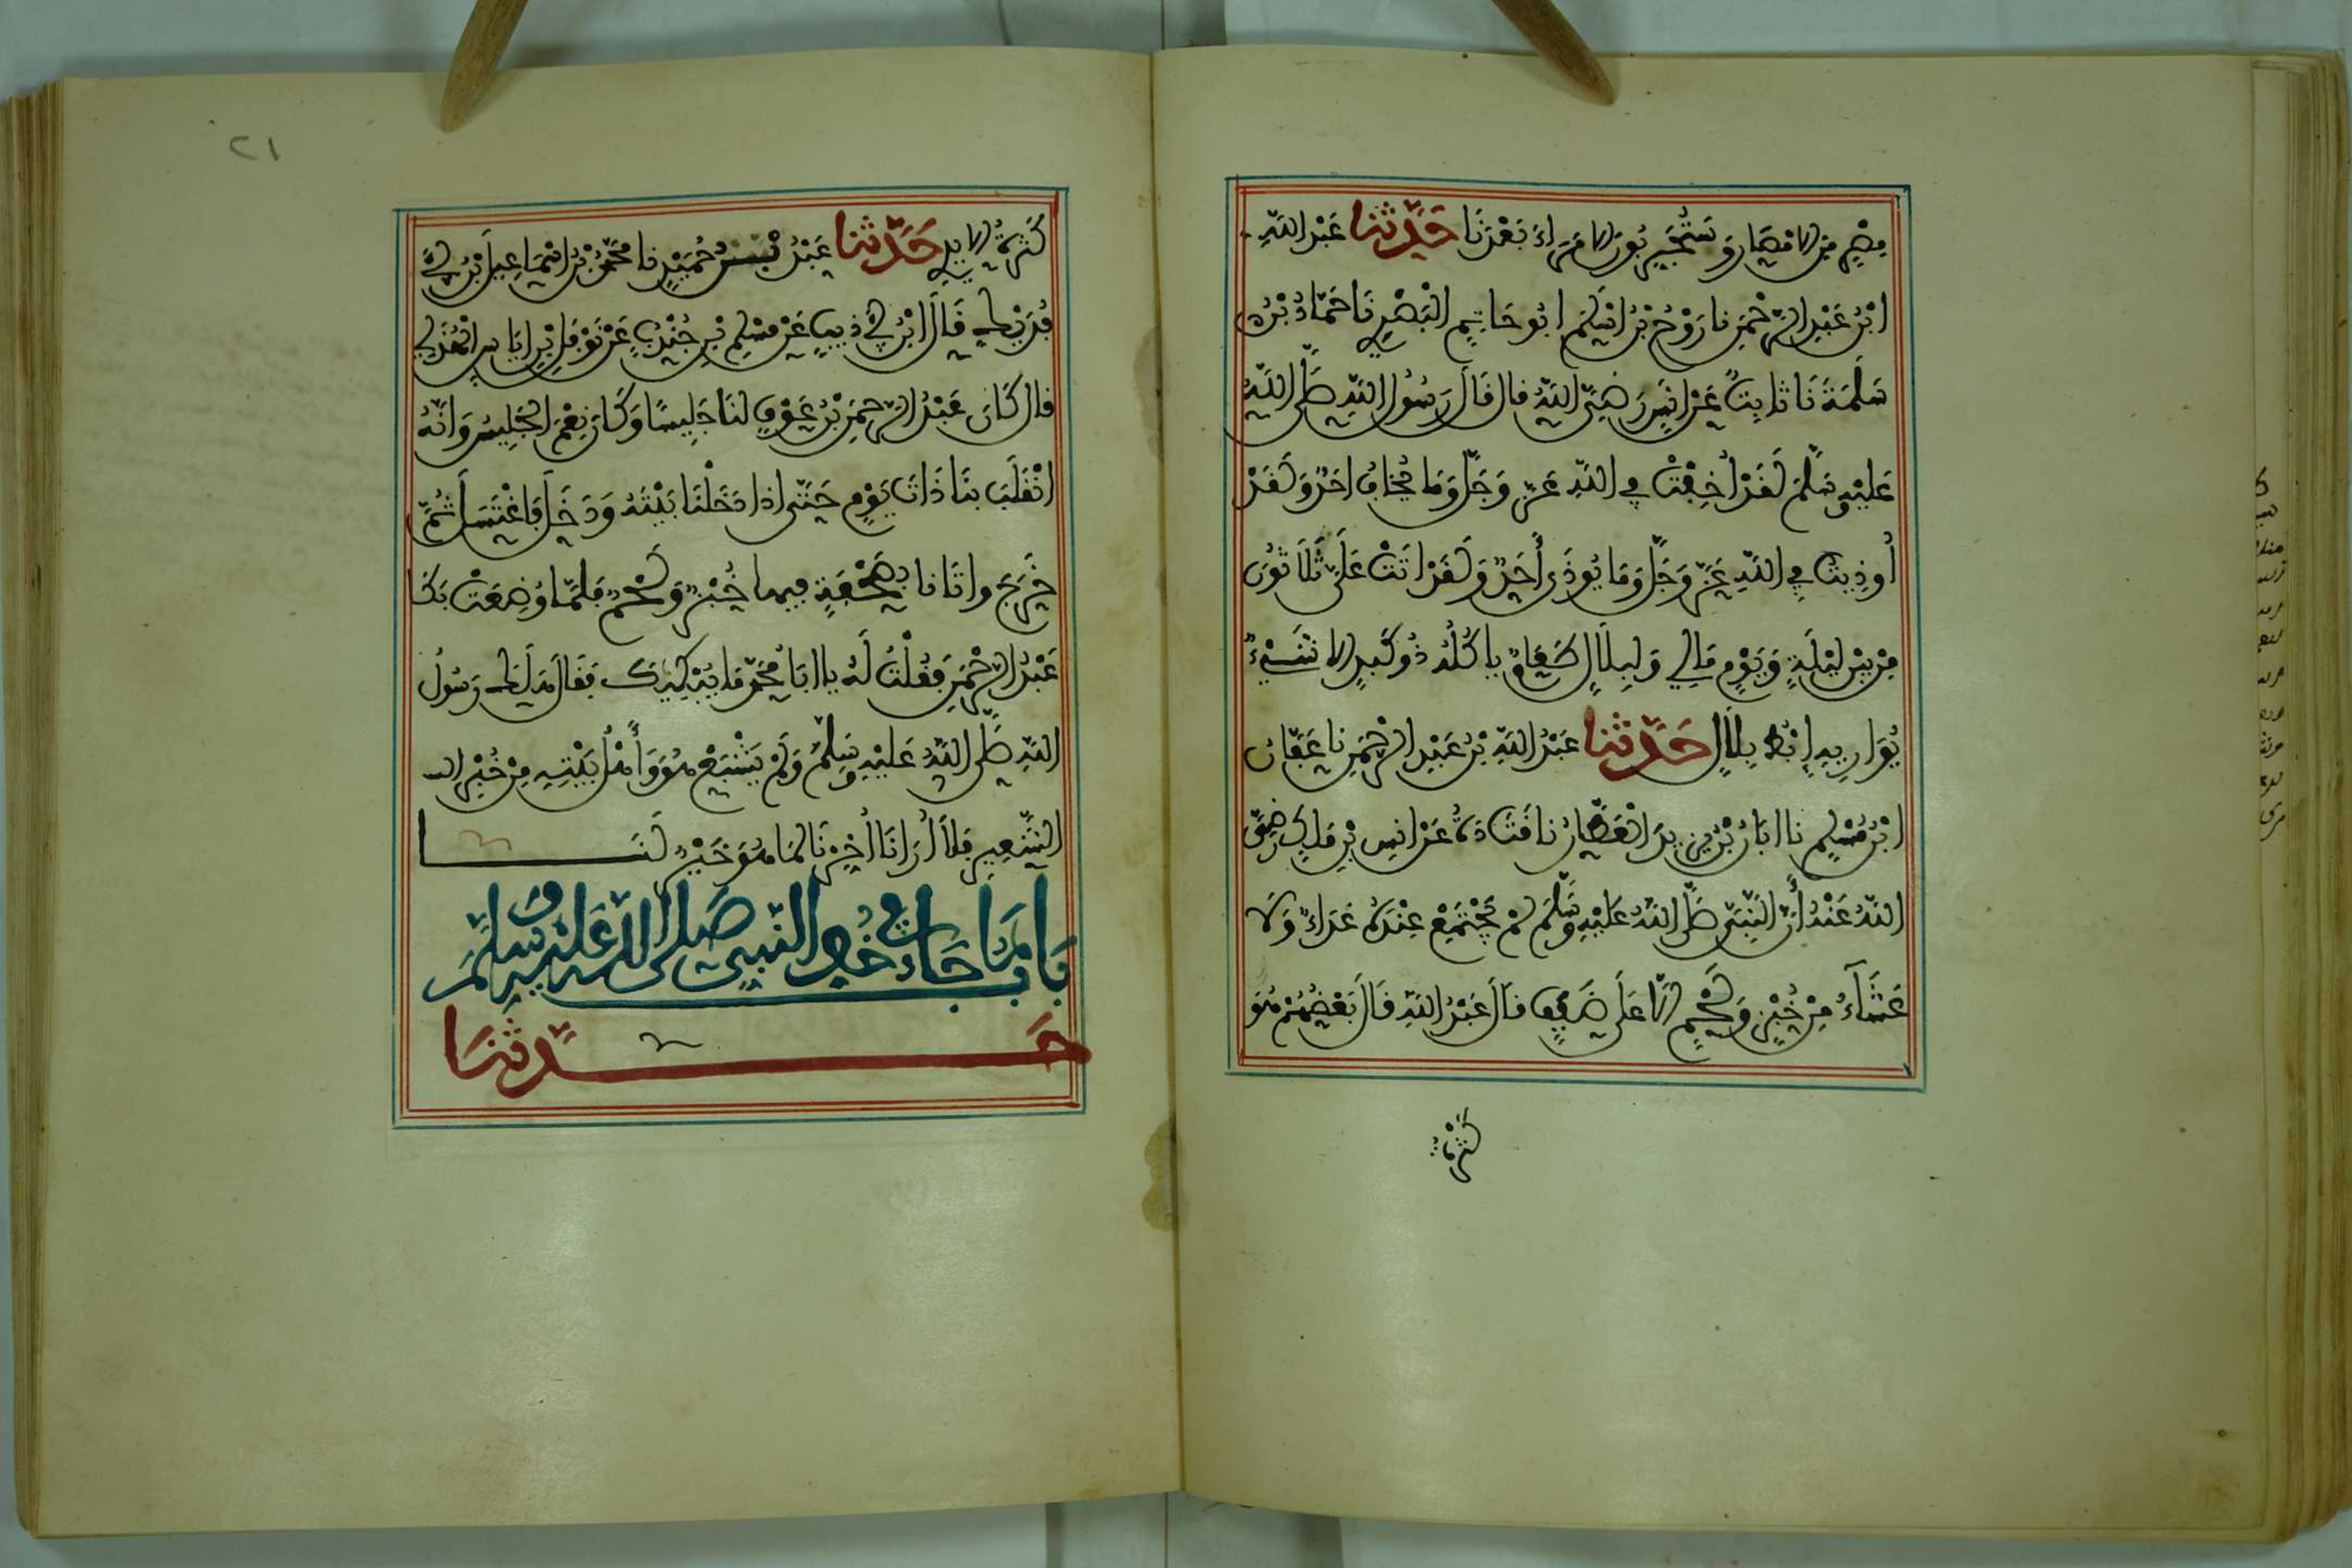 مِصْرٍ مِنَ الامْصَارِ وَسَتُجَرِّبُونَ الامَرَاءَ بَعْدَنَا حَدَّثنا عَبْدُ اللَّهِ
ابْنُ عَبْدِ الرَّحْمَنِ نا رَوْحُ بْنُ اسْلَمَ ابُو حَاتِمٍ الْبَصْرِي نَا حَمَّادُ بْنُ
سَلَمَةَ نَا ثابِتٌ عَنْ انَسٍ رَضِيَ اللَّهُ قال قَالَ رَسُولُ اللَّهِ صَلَّى اللَّهُ
عَلَيْهِ وَسَلَّمَ لَقَدْ أُخِفْتُ فِي اللَّهِ عَزَّ وَجَلَّ وَمَا يُخَافُ احَدٌ وَلَقَدْ
أُوذِيتُ فِي اللَّهِ عَزَّ وَجَلَّ وَمَا يُوذَى أَحَدٌ وَلَقَدْ اتَتْ عَلَيَّ ثَلَاثُونَ
مِنْ بَيْنِ لَيْلَةٍ وَيَوْمٍ مَالِي وَلِبِلَالٍ طَعَامٌ ياكُلُهُ ذُو كَبِدٍ الا شَيْءٌ
يُوَارِيهِ إِبْطُ بِلَالٍ حَدَّثنا عَبْدُ اللَّهِ بْنُ عَبْدِ الرَّحْمَنِ نا عَفَّانُ
ابْنُ مُسْلِمٍ نا ابَانُ بْنُ يَزِيدَ الْعَطَّارُ نا قَتَادَةُ عَنْ انَسِ بْنِ مَالِكٍ رَضِيَ
اللَّهُ عَنْهُ أَنَّ النَّبِيَّ صَلَّى اللَّهُ عَلَيْهِ وَسَلَّمَ لَمْ يَجْتَمِعْ عِنْدَهُ غَدَاءٌ وَلَا
عَشَآءٌ مِنْ خُبْزٍ وَلَحْمٍ الَّا عَلَى ضَفَفٍ قَالَ عَبْدُ اللَّهِ قَالَ بَعْضُهُمْ هُوَ
كَثْرَةُ
٢١
كَثْرَةُ الايدِي حَدَّثنا عَبْدُ بْنُ حُمَيْدٍ نا مُحَمَّدُ بْنُ اسْمَاعِيلَ بْنِ أَبِي
فُدَيْكٍ قَالَ ابْنُ أَبِي ذِيبٍ عَنْ مُسْلِمِ بْنِ جُنْدُبٍ عَنْ نَوْفَلِ بْنِ ايَاسٍ الْهُذَلِي
قال كَانَ عَبْدُ الرَّحْمَنِ بْنُ عَوْفٍ لَنَا جَلِيسًا وَكَانَ نِعْمَ الْجَلِيسُ وَانَّهُ
انْقَلَبَ بنَا ذَاتَ يَوْمٍ حَتَّى اذا دَخَلْنَا بَيْتَهُ وَدَخَلَ فَاغْتَسَلَ ثُمَّ
خَرَجَ واتَانا بِصَحْفَةٍ فيها خُبْزٌ وَلَحْمٌ فَلَمَّا وُضِعَتْ بَكَا
عَبْدُ الرَّحْمَنِ فَقُلْتُ لَهُ يا ابَا مُحَمَّدٍ مَا يُبْكِيكَ فَقَالَ هَلَكَ رَسُولُ
اللَّهِ صَلَّى اللَّهُ عَلَيْهِ وَسَلَّمَ وَلَمْ يَشْبَعْ هُوَ وَأَهْلُ بَيْتِهِ مِنْ خُبْزِ
الشَّعِيرِ فَلَا أُرَانَا أُخِّرْنَا لِمَا هُوَ خَيْرٌ لَنَا
بَابُ مَا جَاءَ فِي خُفِّ النَّبِيِّ صَلَّى اللَّهُ عَلَيْهِ وَسَلَّمَ
حَدَّثَنَا